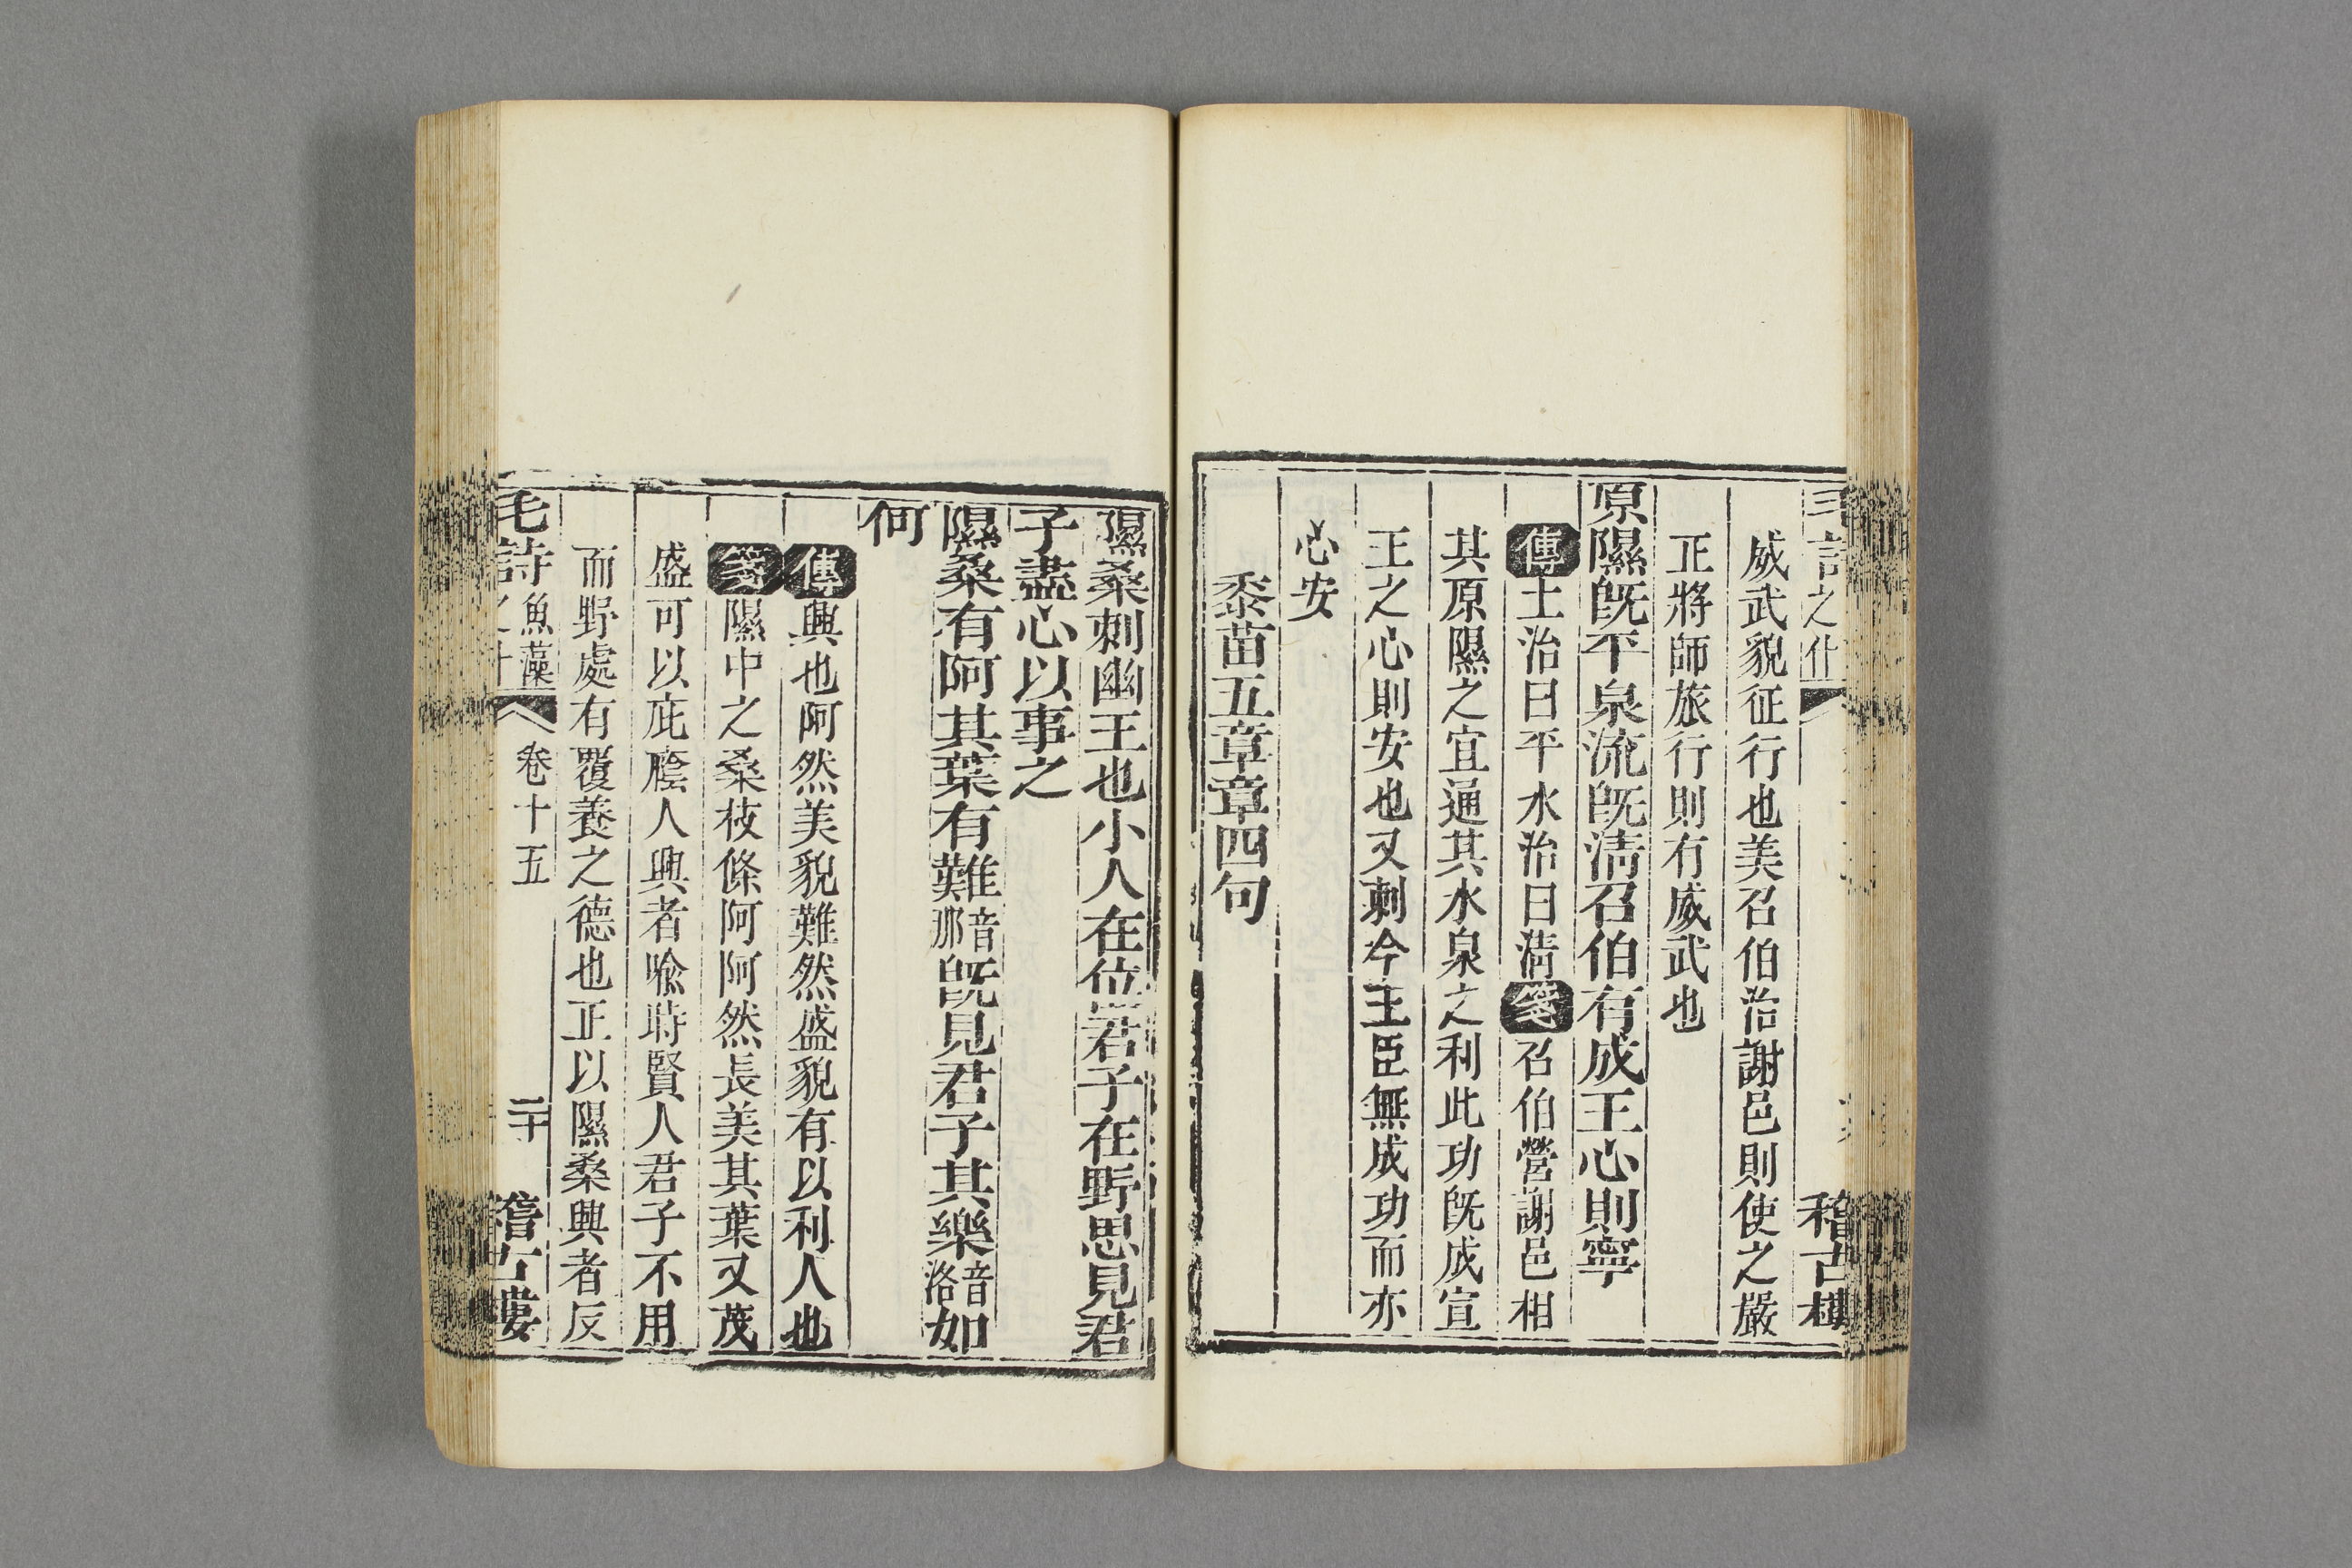 威武貌征行也美召伯治謝邑則使之嚴
正將師旅行則有威武也
原隰旣平泉流旣淸召伯有成王心則寧
傳土治曰平水治曰淸箋召伯營謝邑相
其原隰之宜通其水泉之利此功旣成宣
王之心則安也又刺今王臣無成功而亦
心安
黍苗五章章四句
隰桑刺幽王也小人在位君子在野思見君
子盡心以事之
隰桑有阿其葉有難音那旣見君子其樂音洛如
何
傳興也阿然美貌難然盛貌有以利人也
箋隰中之桑枝條阿阿然長美其葉又茂
盛可以庇廕人興者喻時賢人君子不用
而野處有覆養之德也正以隰桑興者反
毛詩魚藻之什 卷十五 二十 稽古樓